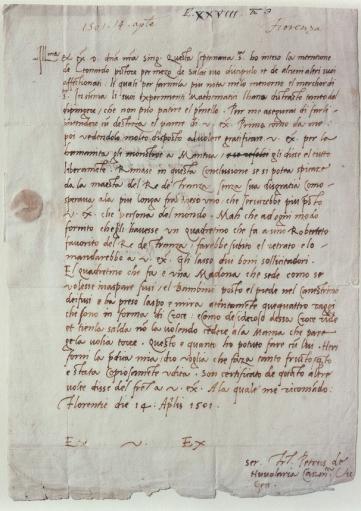 E. XXVIII. n° 3
1501. 14. aple
Fiorenza
Ill.ma et Ex. D. dna mia sing. Questa septimana S. ho inteso la intentione
de Leonardo pittore per mezo de Salai suo discipulo et de alcuni altri suoi
affetionati. li quali per farmila piu nota melo menorno el mercordi di
S. In summa li suoi experimenti Mathematici l hano distratto tanto dal
dipingere, che non puo patire el pennello. Pur me asegurai di farli
intendere in destreza el parere di v. ex. Prima como da me
poi vedendolo molto disposto al volere gratificare v. ex. per la
humanita gli monstroe a Mantua, gli disse el tutto
liberamente. Rimase in questa conclusione se si potea spiccare
da la maesta del Re de Franza senza sua disgratia como
sperava ala piu longa fra meso uno che servirebbe piu presto
v. ex. che persona del mondo. Ma che ad ogni modo
fornito ch egli havesse un quadretino che fa a uno Roberteto
favorito del Re de Franza, farebbe subito el retrato e lo
mandarebbe a v. ex. Gli lasso dui boni sollicitadori.
El quadretino che fa e una Madona che sede como se
volesse inaspare fusi, el Bambino posto el piede nel canestrino
dei fusi e ha preso laspo e mira atentamente que quattro raggi
che sono in forma di Croce. e como desideroso dessa Croce ride
et tienla salda no la volendo cedere ala Mama che pare
gela volia torre. Questo e quanto ho potuto fare cu lui. Heri
fornii la predica mia, dio voglia che faza tanto frutto quato
e stata copiosamente udita. Son certificato de questo altre
volte
Florentie die 14 Aplis 1501.
E. v. Ex
ser. Fr. Petrus de
Nuvolaria
Gen.